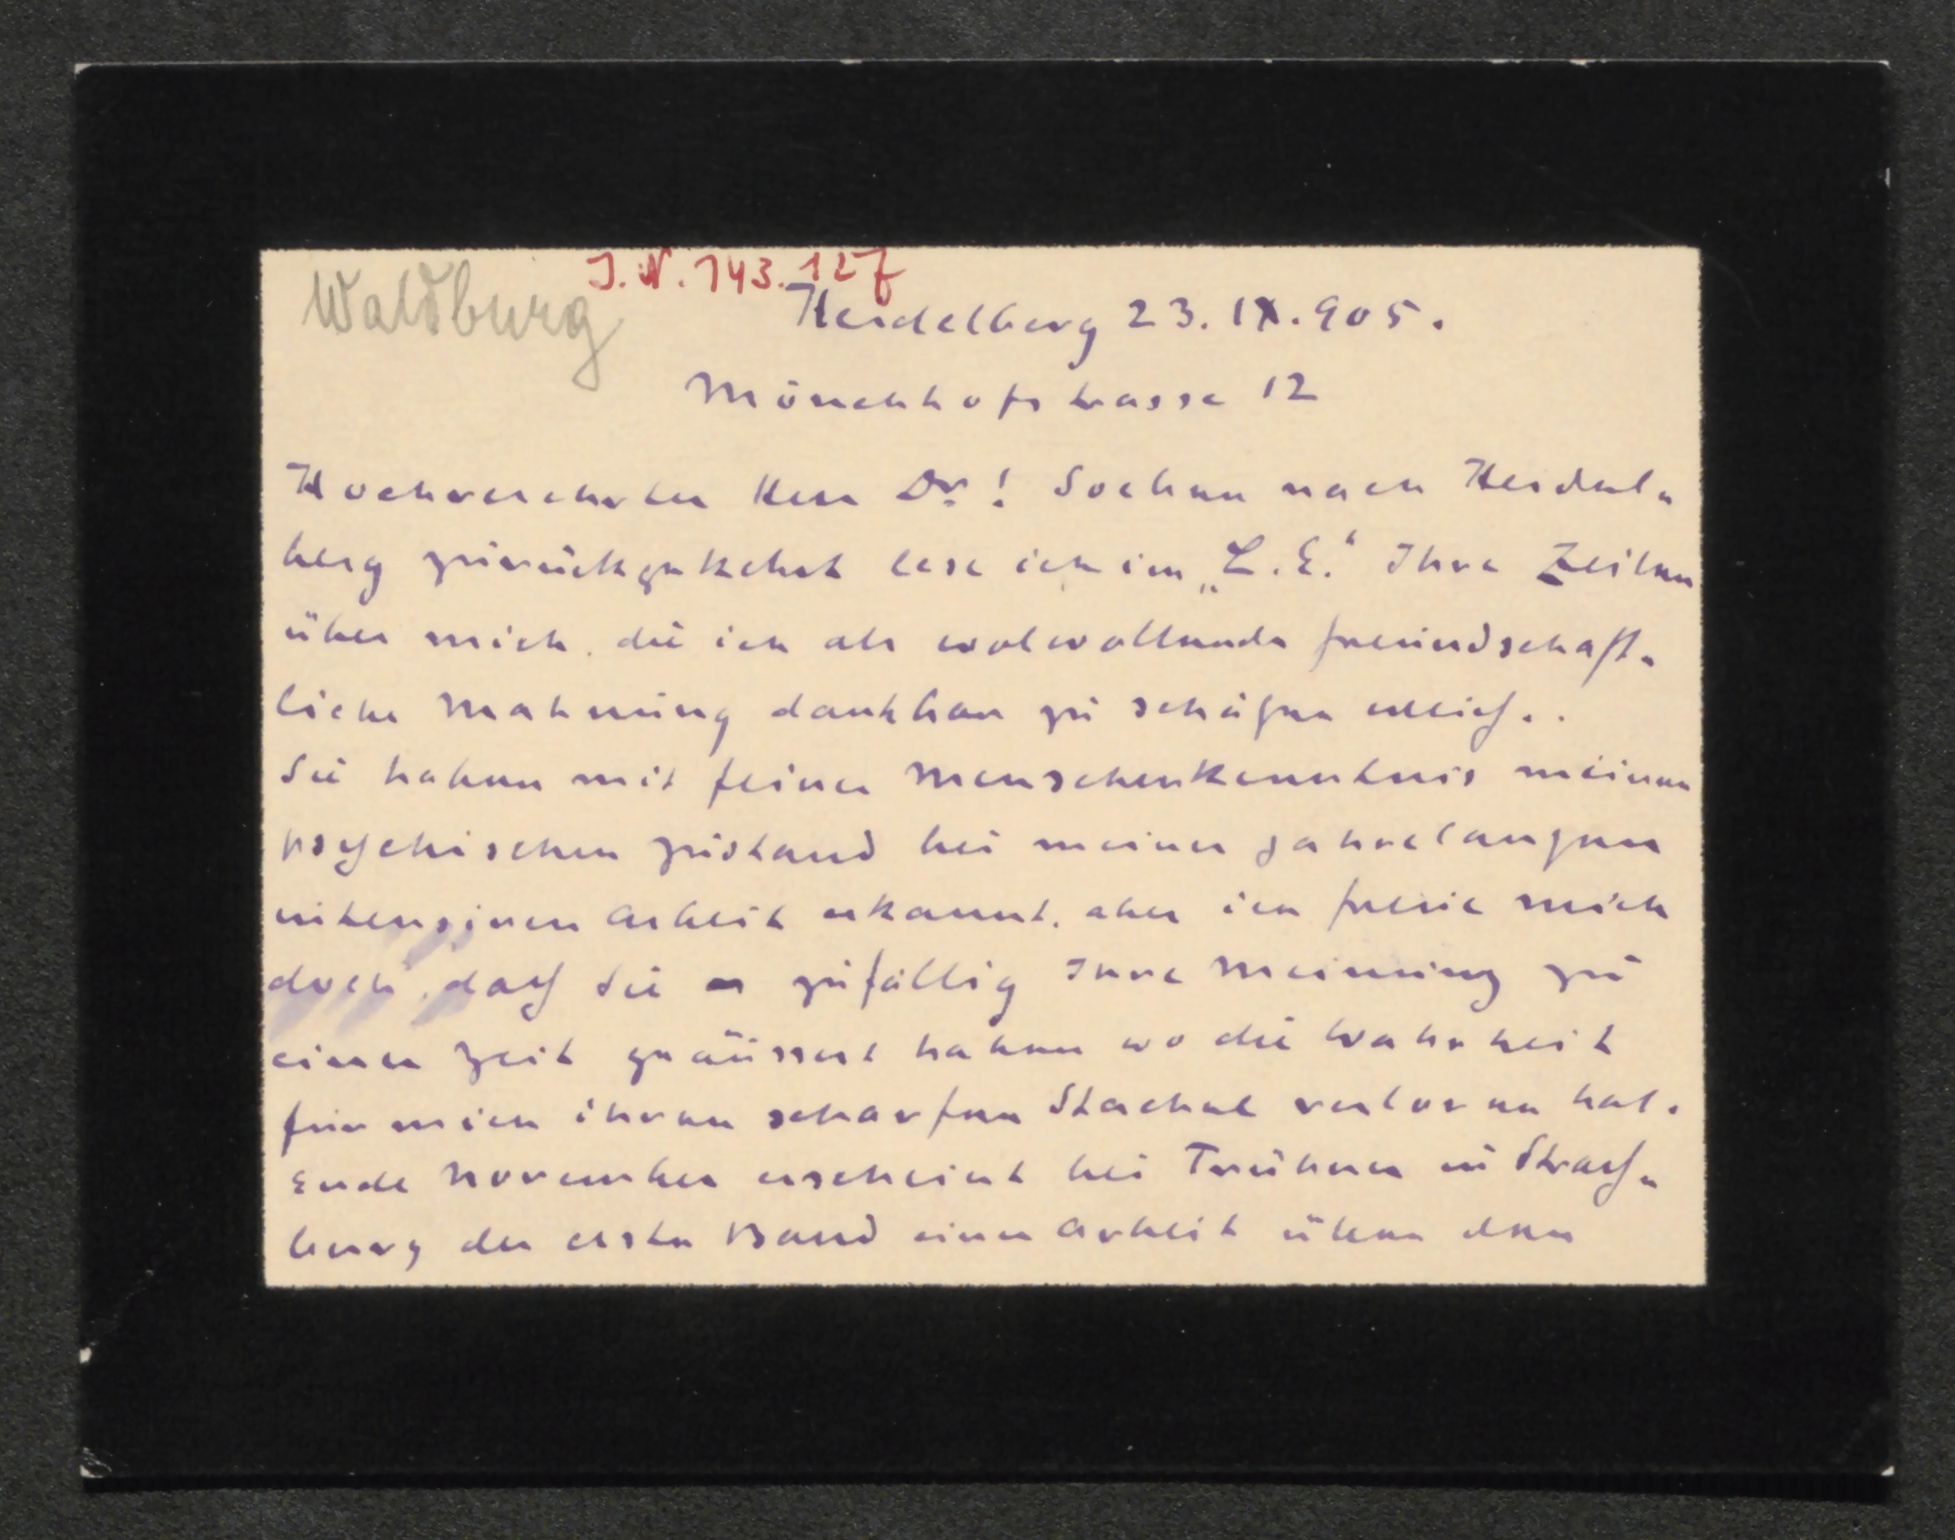 Waldburg
I.N. 143.127
Heidelberg 23. IX. 905.
Mönchhofstrasse 12
Hochverehrter Herr Dr.! Soeben nach Heidel-
berg zurückgekehrt lese ich im „L. E.“ Ihre Zeilen
über mich, die ich als wolwollende freundschaft-
liche Mahnung dankbar zu schätzen weiß.
Sie haben mit feiner Menschenkenntnis meinen
psychischen Zustand bei meiner jahrelangen
intensiven Arbeit erkannt, aber ich freue mich
doch, daß Sie zufällig Ihre Meinung zu
einer Zeit geäussert haben wo die Wahrheit
für mich ihren scharfen Stachel verloren hat.
Ende November erscheint bei Trübner in Straß-
burg der erste Band einer Arbeit über den